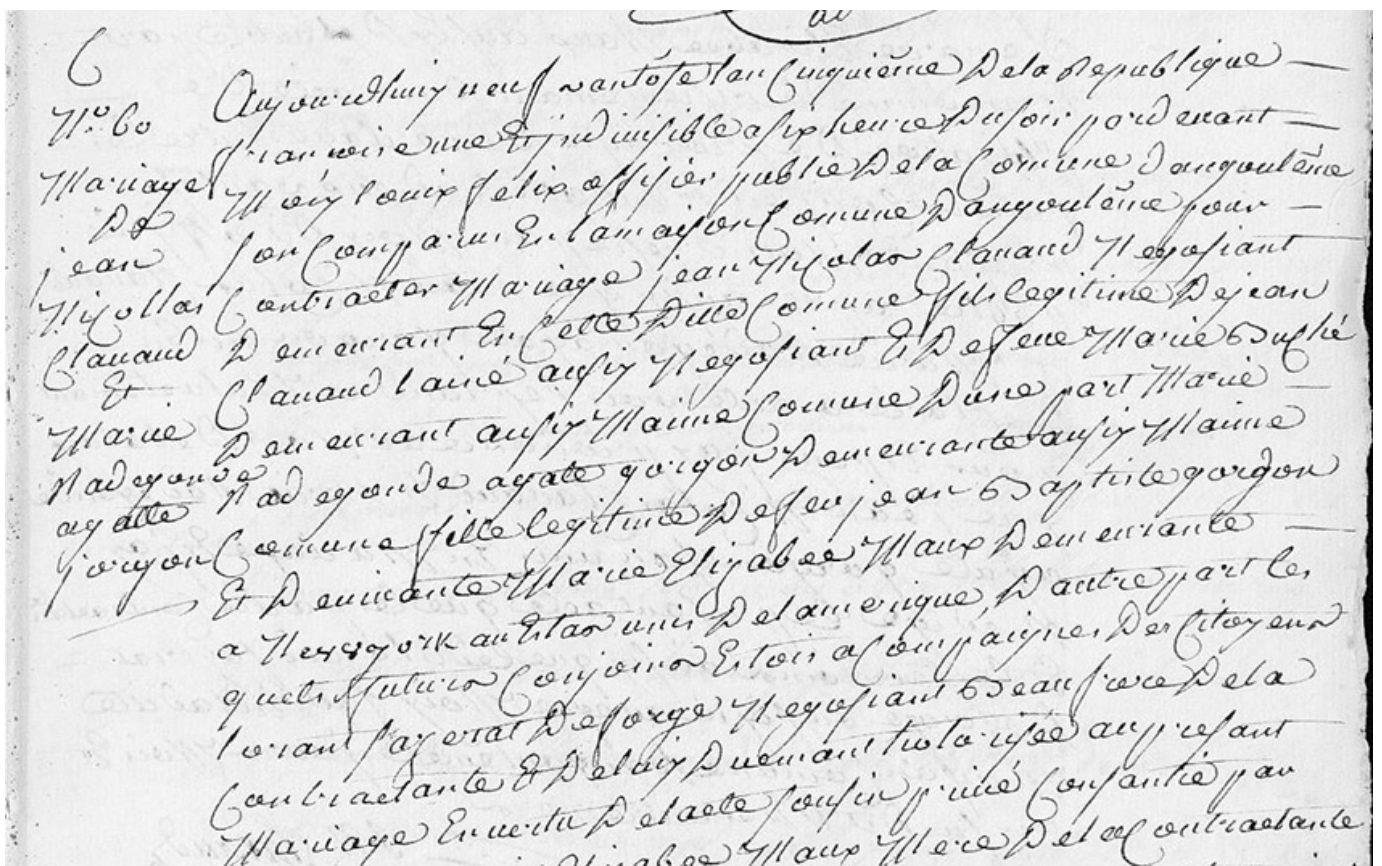 N.o 60
Mariage
De
jean
Nicollas
Clavaud
Et
Marie
Radegonde
agatte
jorgon
Aujourdhuiy neuf vantose lan Cinquième De la Republique
francoise une Et jndivisible a six heure Du soir pardevant
Moiy louix felix offisier public De la Comune dangoulême
son Comparus En lamaison Comune D'angoulême pour
Contracter Mariage jean Nicolas Clavaud Negosiant
Demeurant En Cette Ditte Comune fils legitime De jean
Clavaud l'ainé ausiy Negosiant Et De feue Marie Buché
Demeurant ausiy Maime Comune Dune part Marie
Radegonde agate gorgon Demeurante ausiy Maime
Comune fille legitime De feu jean Baptiste gorgon
Et De vivante Marie Elizabee Maux Demeurante
a Newyork au Estas unis De lamerique D'autre part les
quels futurs Conjoins Estois acompaignes Des Citoyens
lorant sazerat Deforge Negosiant Beaufrere De la
Contractante Et De luiy Duemant hotorisée au presant
Mariage En vertu De lacte sousin privé Consantie par
Elizabee Maux Mere De la Contractante